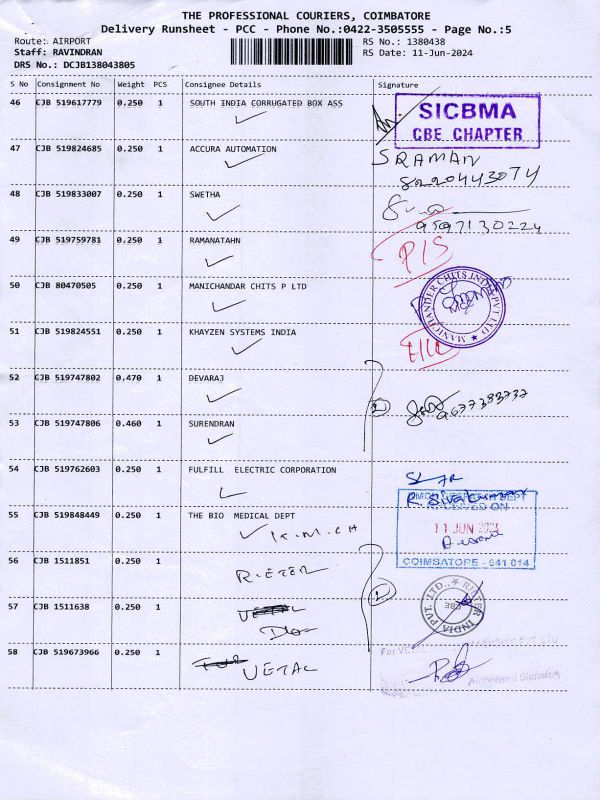 THE PROFESSIONAL COURIERS, COIMBATORE
Delivery Runsheet - PCC - Phone No.:0422-3505555 - Page No.:5
Route: AIRPORT
RS No.: 1380438
Staff: RAVINDRAN
RS Date: 11-Jun-2024
DRS No.: DCJB138043805
S No Consignment No Weight PCS Consignee Details Signature
46 CJB 519617779 0.250 1 SOUTH INDIA CORRUGATED BOX ASS
SICBMA
CBE CHAPTER
47 CJB 519824685 0.250 1 ACCURA AUTOMATION
SRAMAN
8220443074
48 CJB 519833007 0.250 1 SWETHA
9597130224
49 CJB 519759781 0.250 1 RAMANATAHN
P/S
50 CJB 80470505 0.250 1 MANICHANDAR CHITS P LTD
MANICHANDER CHITS INDIA PVT LTD
51 CJB 519824551 0.250 1 KHAYZEN SYSTEMS INDIA
52 CJB 519747802 0.470 1 DEVARAJ
9677383737
53 CJB 519747806 0.460 1 SURENDRAN
54 CJB 519762603 0.250 1 FULFILL ELECTRIC CORPORATION
55 CJB 519848449 0.250 1 THE BIO MEDICAL DEPT
K.M.C.H
RECEIVED ON
11 JUN 2024
COIMBATORE - 641 014
56 CJB 1511851 0.250 1
RIETER
57 CJB 1511638 0.250 1
Do
RIETER INDIA PVT. LTD.
CBE
58 CJB 519673966 0.250 1
VETAL
For VETAL
PVT LTD
Authorised Signatory